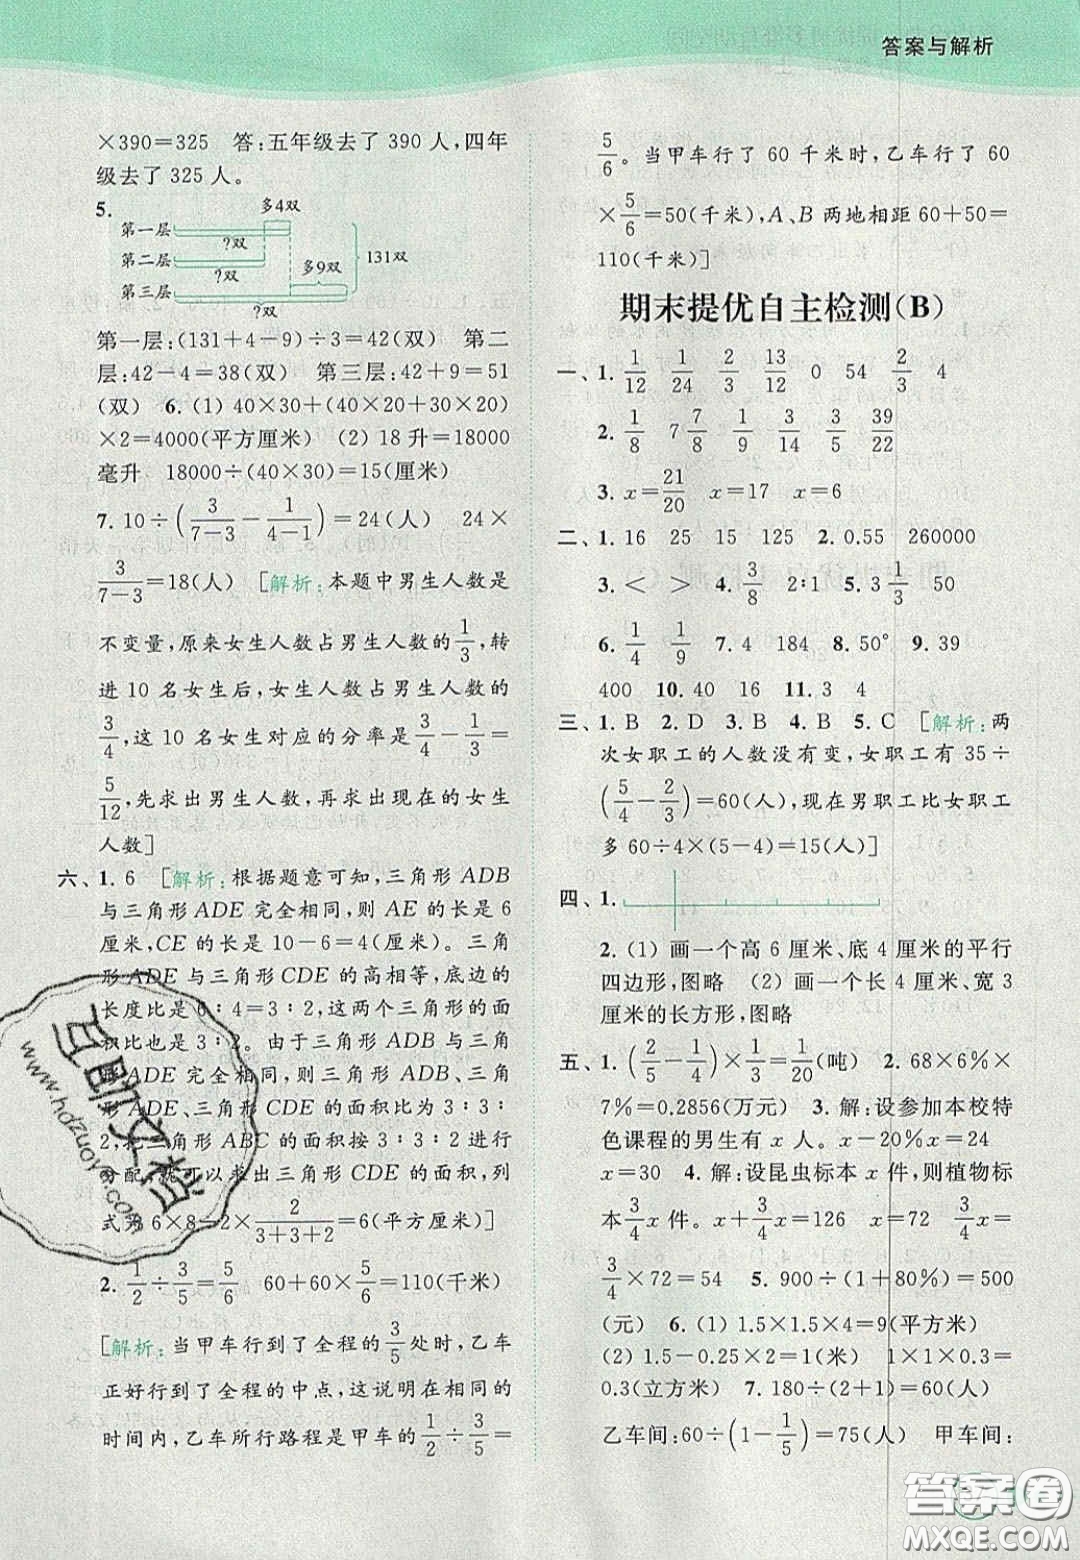 答案与解析
×390=325　答:五年级去了 390 人,四年
级去了 325 人。
5.
多4双
第一层
?双
第二层
?双
多9双
131双
第三层
?双
第一层:(131+4-9)÷3=42(双)　第二
层:42-4=38(双)　第三层:42+9=51
(双)　6. (1) 40×30+(40×20+30×20)
×2=4000(平方厘米)　(2) 18 升=18000
毫升　18000÷(40×30)=15(厘米)
7. 10÷(3/(7-3)-1/(4-1))=24(人)　24×
3/(7-3)=18(人)　[解析:本题中男生人数是
不变量,原来女生人数占男生人数的1/3,转
进 10 名女生后,女生人数占男生人数的
3/4,这 10 名女生对应的分率是3/4-1/3=
5/12,先求出男生人数,再求出现在的女生
人数]
六、1. 6　[解析:根据题意可知,三角形 ADB
与三角形 ADE 完全相同,则 AE 的长是 6
厘米,CE 的长是 10-6=4(厘米)。三角
形 ADE 与三角形 CDE 的高相等,底边的
长度比是 6∶4=3∶2,这两个三角形的面
积比也是 3∶2。由于三角形 ADB 与三角
形 ADE 完全相同,三角形 ADB、三角形
ADE、三角形 CDE 的面积比为 3∶3∶
2,把三角形 ABC 的面积按 3∶3∶2 进行
分配,就可以求出三角形 CDE 的面积,列
式为 6×8÷2×2/(3+3+2)=6(平方厘米)]
2. 1/2÷3/5=5/6　60+60×5/6=110(千米)
[解析:当甲车行到了全程的3/5处时,乙车
正好行到了全程的中点,这说明在相同的
时间内,乙车所行路程是甲车的1/2÷3/5=
5/6。当甲车行了 60 千米时,乙车行了 60
×5/6=50(千米),A、B 两地相距 60+50=
110(千米)]
期末提优自主检测(B)
一、1. 1/12　1/24　2/3　13/12　0　54　2/3　4
2. 1/8　7 7/8　1/9　3/14　3/5　39/22
3. x=21/20　x=17　x=6
二、1. 16　25　15　125　2. 0.55　260000
3. <　>　4. 3/8　2∶1　5. 3 1/3　50
6. 1/4　1/9　7. 4　184　8. 50°　9. 39
400　10. 40　16　11. 3　4
三、1. B　2. D　3. B　4. B　5. C　[解析:两
次女职工的人数没有变,女职工有 35÷
(5/4-2/3)=60(人),现在男职工比女职工
多 60÷4×(5-4)=15(人)]
四、1.
2. (1) 画一个高 6 厘米、底 4 厘米的平行
四边形,图略　(2) 画一个长 4 厘米、宽 3
厘米的长方形,图略
五、1. (2/5-1/4)×1/3=1/20(吨)　2. 68×6%×
7%=0.2856(万元)　3. 解:设参加本校特
色课程的男生有 x 人。x-20%x=24
x=30　4. 解:设昆虫标本 x 件,则植物标
本3/4x 件。x+3/4x=126　x=72　3/4x=
3/4×72=54　5. 900÷(1+80%)=500
(元)　6. (1) 1.5×1.5×4=9(平方米)
(2) 1.5-0.25×2=1(米)　1×1×0.3=
0.3(立方米)　7. 180÷(2+1)=60(人)
乙车间:60÷(1-1/5)=75(人)　甲车间:
互助文档
www.hdzuoye.com
答案圈
MXQE.COM